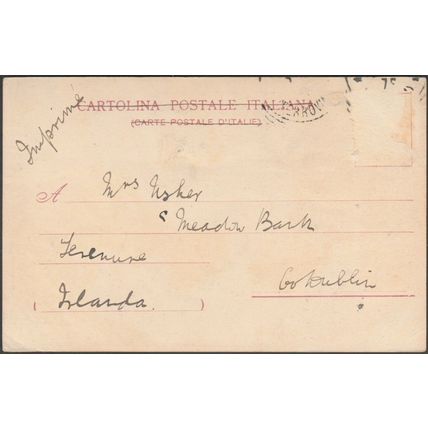 Imprimé
CARTOLINA POSTALE ITALIANA
(CARTE POSTALE D'ITALIE)
A Mrs Usher
Meadow Bank
Terenure
Co Dublin
(Irlanda.)